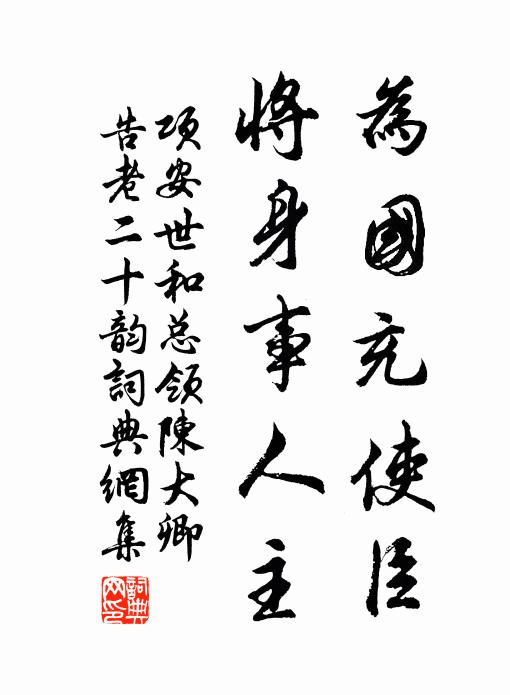 為國充使臣
將身事人主
項安世和总领陳大卿
告老二十韵詞典網集
詞典网印